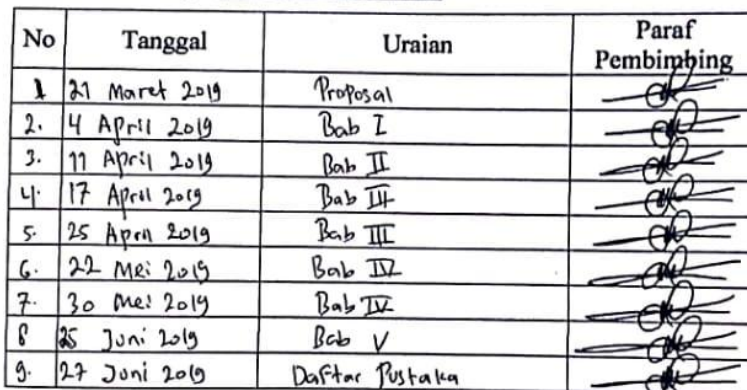 No Tanggal Uraian Paraf Pembimbing
1 21 Maret 2019 Proposal
2. 4 April 2019 Bab I
3. 11 April 2019 Bab II
4. 17 April 2019 Bab III
5. 25 April 2019 Bab III
6. 22 Mei 2019 Bab IV
7. 30 Mei 2019 Bab IV
8 25 Juni 2019 Bab V
9. 27 Juni 2019 Daftar Pustaka